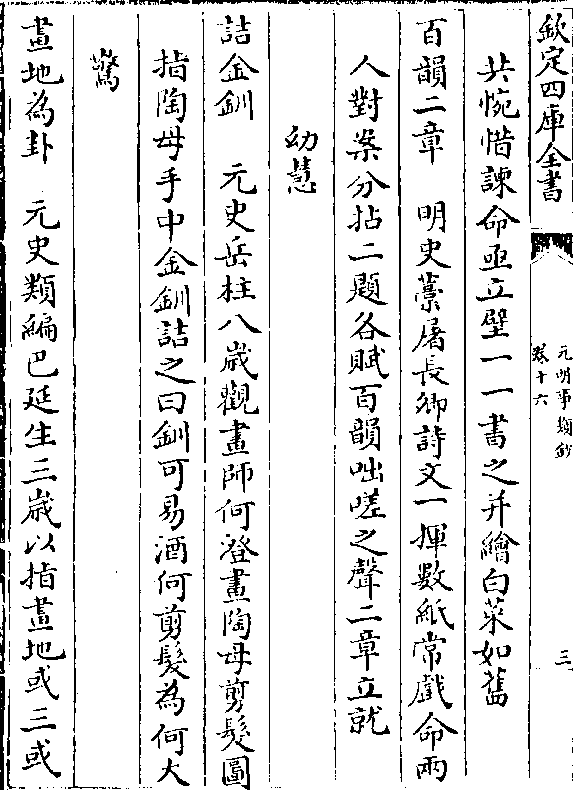 欽定四庫全書
元明事類鈔
卷十六
三
共惋惜諫命亟立壁一一書之并繪白菜如舊
百韻二章　明史藁屠長卿詩文一揮數紙常戲命兩
人對案分拈二題各賦百韻咄嗟之聲二章立就
幼慧
詰金釧　元史岳柱八歲觀畫師何澄畫陶母剪髮圖
指陶母手中金釧詰之曰釧可易酒何剪髮為何大
驚
畫地為卦　元史類編巴延生三歲以指畫地或三或